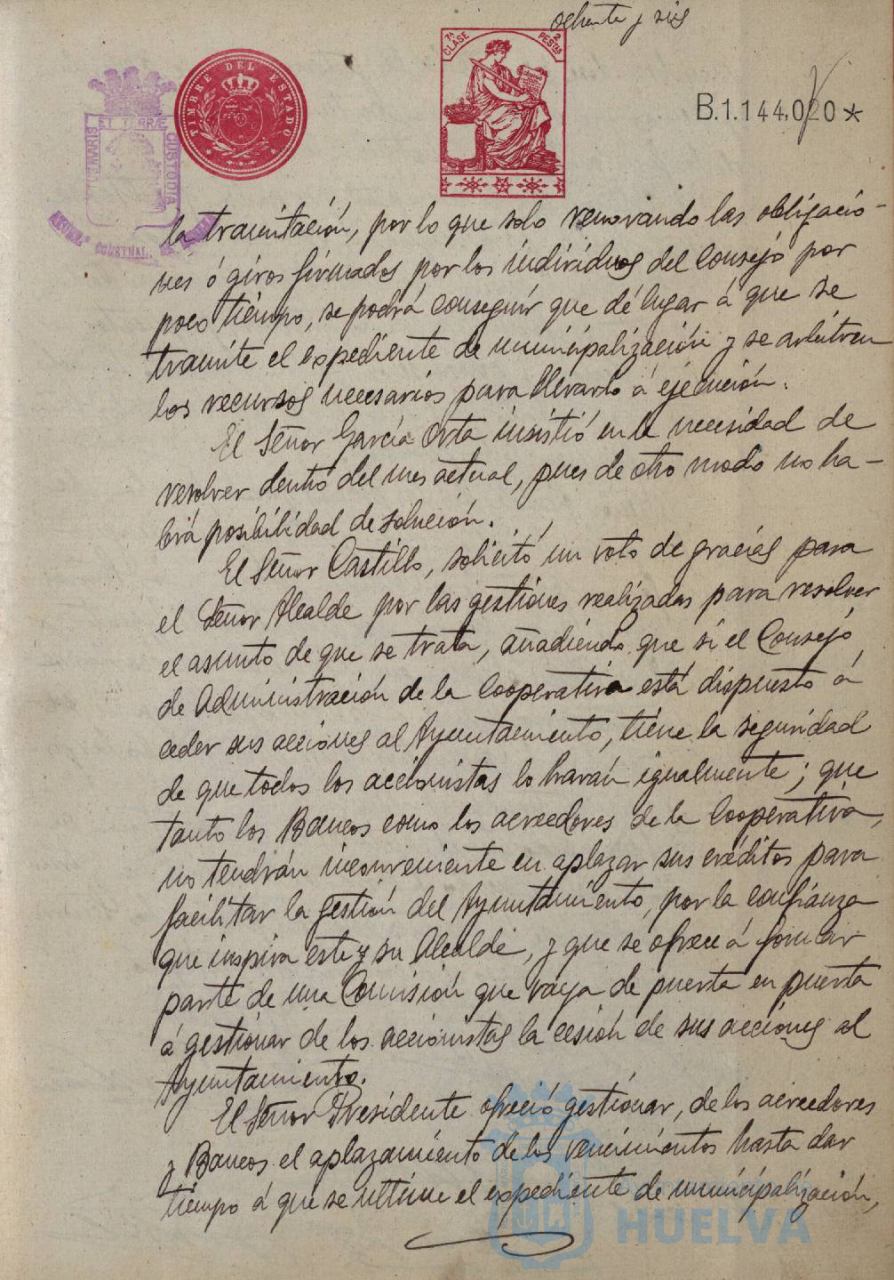 ochenta y seis
7ª CLASE 2 PESTAS
TIMBRE DEL ESTADO
MARIS ET TERRÆ CUSTODIA
B.1.144.020 *
la tramitación, por lo que solo renovando las obligacio-
nes ó giros firmados por los individuos del Consejo por
poco tiempo, se podrá conseguir que dé lugar á que se
tramite el expediente de municipalización y se arbitren
los recursos necesarios para llevarlo á ejecución.
El Señor García Orta insistió en la necesidad de
resolver dentro del mes actual, pues de otro modo no ha-
brá posibilidad de solución.
El Señor Castillo, solicitó un voto de gracias para
el Señor Alcalde por las gestiones realizadas para resolver
el asunto de que se trata, añadiendo que si el Consejo
de Administración de la Cooperativa está dispuesto á
ceder sus acciones al Ayuntamiento, tiene la seguridad
de que todos los accionistas lo harán igualmente; que
tanto los Bancos como los acreedores de la Cooperativa,
no tendrán inconveniente en aplazar sus créditos para
facilitar la gestión del Ayuntamiento, por la confianza
que inspira este y su Alcalde, y que se ofrece á formar
parte de una Comisión que vaya de puerta en puerta
á gestionar de los accionistas la cesión de sus acciones al
Ayuntamiento.
El Señor Presidente ofreció gestionar, de los acreedores
y Bancos el aplazamiento de los vencimientos hasta dar
tiempo á que se ultime el expediente de municipalización,
HUELVA